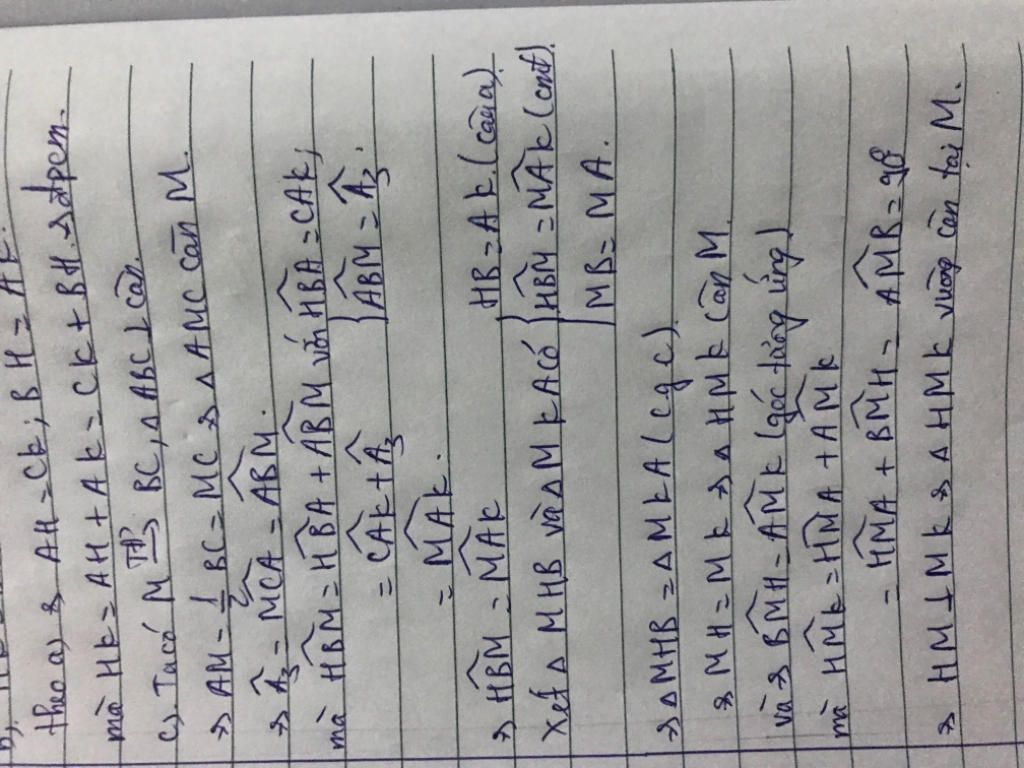 theo a) → AH = CK; BH = AK.
mà HK = AH + AK = CK + BH → đpcm.
c). Ta có M TĐ → BC, Δ ABC ⊥ cân.
→ AM = 1/2 BC = MC → Δ AMC cân M.
→ Â3 = MCA = ABM.
mà HBM = HBA + ABM với { HBA = CAK;
= CAK + Â3 ABM = Â3.
= MAK.
→ HBM = MAK
Xét Δ MHB và Δ MKA có { HB = AK. (câu a)
HBM = MAK (cmt).
MB = MA.
→ Δ MHB = Δ MKA (c g c)
→ MH = MK → Δ HMK cân M.
và → BMH = AMK (góc tương ứng)
mà HMK = HMA + AMK
= HMA + BMH = AMB = 90°
→ HM ⊥ MK → Δ HMK vuông cân tại M.